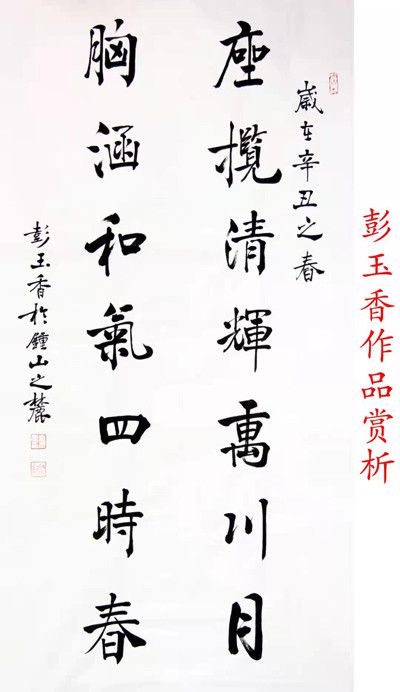 歲在辛丑之春
座攬清輝萬川月
胸涵和氣四時春
彭玉香於鍾山之麓
彭玉香作品赏析